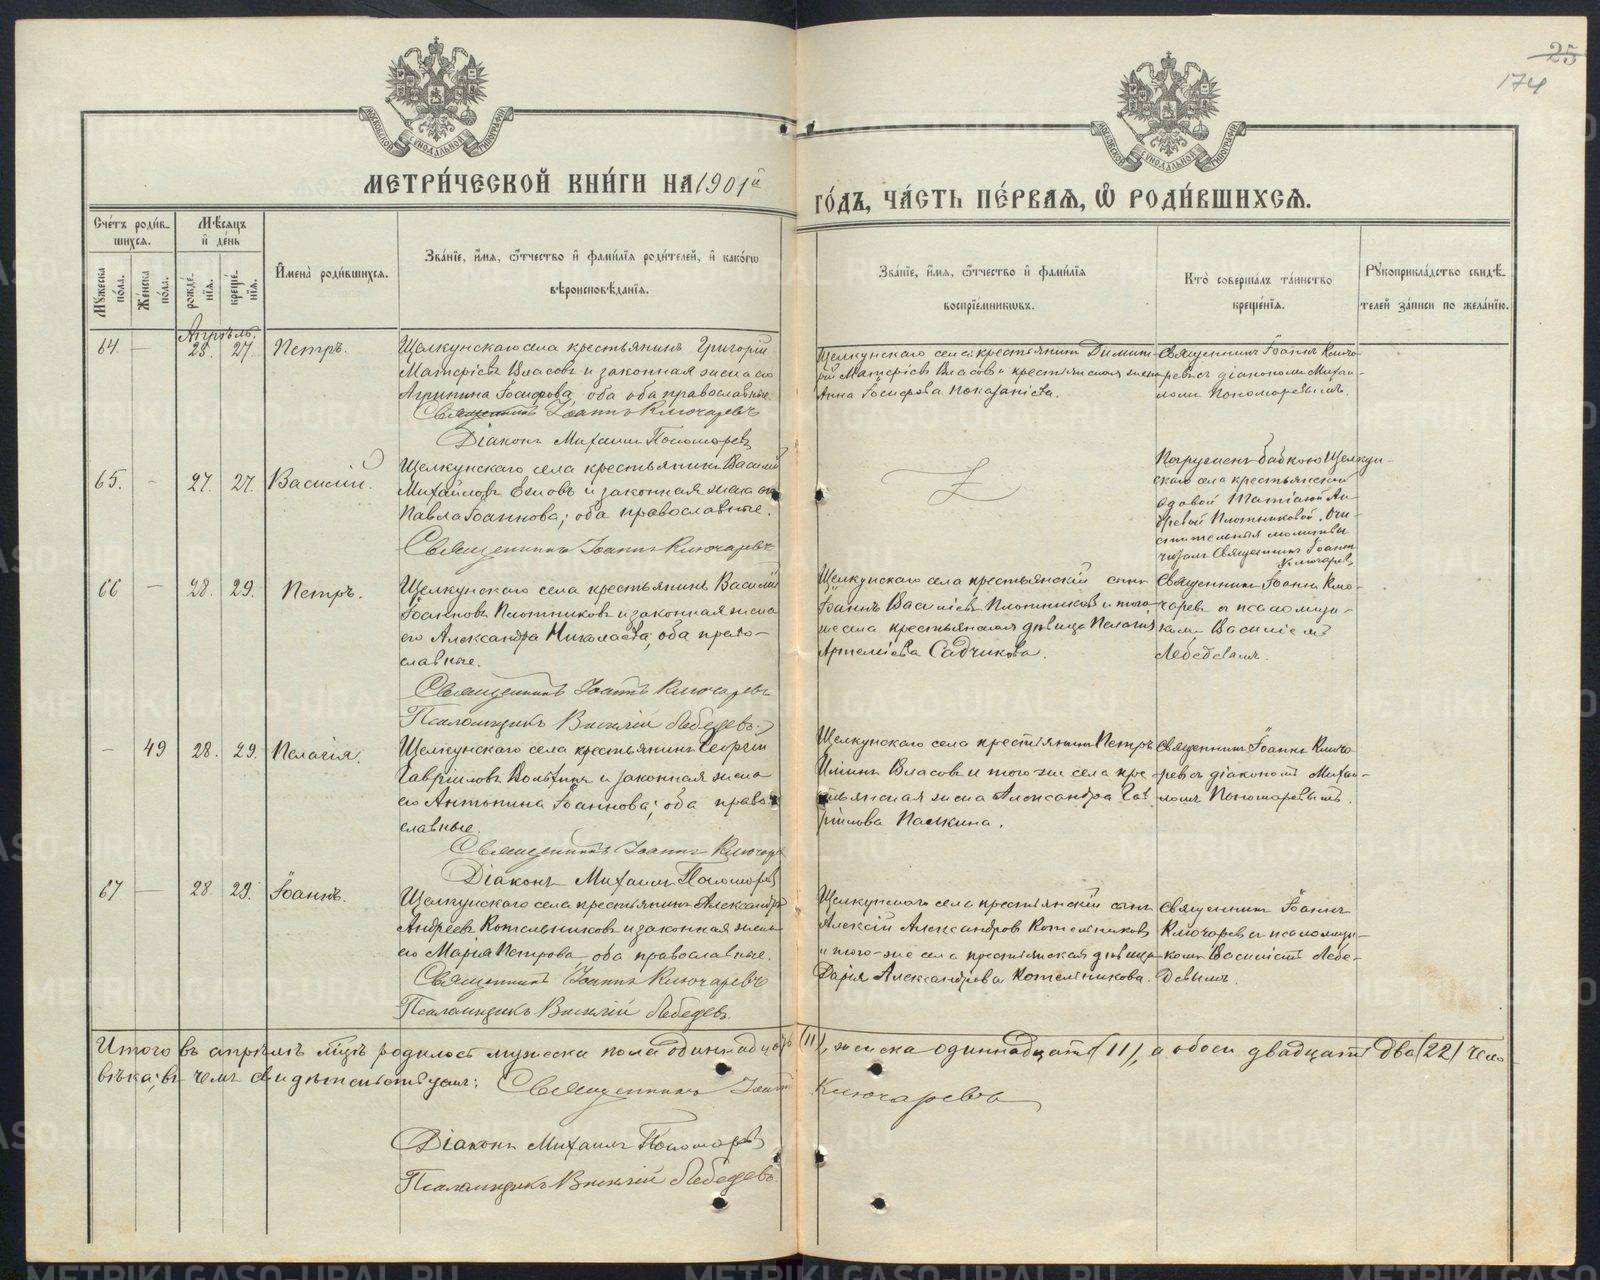 25
174
МЕТРИ́ЧЕСКОЙ КНИ́ГИ НА 1901й
ГО́ДЪ, ЧА́СТЬ ПЕ́РВАЯ, Ѡ҆ РОДИ́ВШИХСЯ.
Сче́тъ роди́в-
шихся.
Мѣ́сяцъ
и҆ де́нь
Му́жеска
по́ла.
Же́нска
по́ла.
рожде́-
нїя.
креще́-
нїя.
И҆мена̀ роди́вшихся.
Зва́нїе, и҆́мя, ѻ҆́тчество и҆ фами́лїя роди́телей, и҆ како́гѡ
вѣроисповѣ́данїя.
Зва́нїе, и҆́мя, ѻ҆́тчество и҆ фами́лїя
воспрїе́мникѡвъ.
Кто̀ соверша́лъ та́инство
креще́нїя.
Рꙋкоприкла́дство свидѣ́-
телей за́писи по жела́нїю.
Апрѣль.
64. — 25. 27. Петръ.
Щелкунскаго села крестьянинъ Григорій
Матѳіевъ Власовъ и законная жена его
Агрипина Іосифова, оба православные.
Священникъ Іоаннъ Ключаревъ
Діаконъ Михаилъ Пономаревъ
Щелкунскаго села крестьянинъ Димит-
рій Матѳіевъ Власовъ и крестьянская жена
Анна Іосифова Показаньева.
Священникъ Іоаннъ Ключа-
ревъ съ діакономъ Михаи-
ломъ Пономаревымъ.
65. — 27. 27. Василій.
Щелкунскаго села крестьянинъ Василій
Михайловъ Еловъ и законная жена его
Павла Іоаннова; оба православные.
Священникъ Іоаннъ Ключаревъ
Z
Погруженъ бабкою Щелкун-
скаго села крестьянской
вдовой Татіаной Ан-
дреевой Плотниковой. Очи-
стительныя молитвы
читалъ Священникъ Іоаннъ
Ключаревъ
66 — 28. 29. Петръ.
Щелкунскаго села крестьянинъ Василій
Іоанновъ Плотниковъ и законная жена
его Александра Николаева, оба право-
славные.
Священникъ Іоаннъ Ключаревъ
Псаломщикъ Василій Лебедевъ.
Щелкунскаго села крестьянскій сынъ
Іоаннъ Василіевъ Плотниковъ и того-
же села крестьянская дѣвица Пелагія
Артеміева Садчикова.
Священникъ Іоаннъ Клю-
чаревъ съ псаломщи-
комъ Василіемъ
Лебедевымъ.
— 49 28. 29. Пелагія.
Щелкунскаго села крестьянинъ Георгій
Гавріиловъ и законная жена
его Антонина Іоаннова; оба право-
славные.
Священникъ Іоаннъ Ключаревъ
Діаконъ Михаилъ Пономаревъ
Щелкунскаго села крестьянинъ Петръ
Ильинъ Власовъ и того же села кре-
стьянская жена Александра Гав-
ріилова Палкина.
Священникъ Іоаннъ Ключа-
ревъ съ діакономъ Михаи-
ломъ Пономаревымъ.
67 — 28 29. Іоаннъ.
Щелкунскаго села крестьянинъ Александръ
Андреевъ Котельниковъ и законная жена
его Марія Петрова оба православные.
Священникъ Іоаннъ Ключаревъ
Псаломщикъ Василій Лебедевъ.
Щелкунскаго села крестьянскій сынъ
Алексій Александровъ Котельниковъ
и того-же села крестьянская дѣвица
Дарія Александрова Котельникова.
Священникъ Іоаннъ
Ключаревъ съ псаломщи-
комъ Василіемъ Лебе-
девымъ.
Итого въ апрѣлѣ м҃цѣ родилось мужеска пола одиннадцать (11), женска одиннадцать (11), а обоего двадцать два (22) чело-
вѣка; въ чемъ и свидѣтельствуемъ: Священникъ Іоаннъ Ключаревъ
Діаконъ Михаилъ Пономаревъ
Псаломщикъ Василій Лебедевъ.